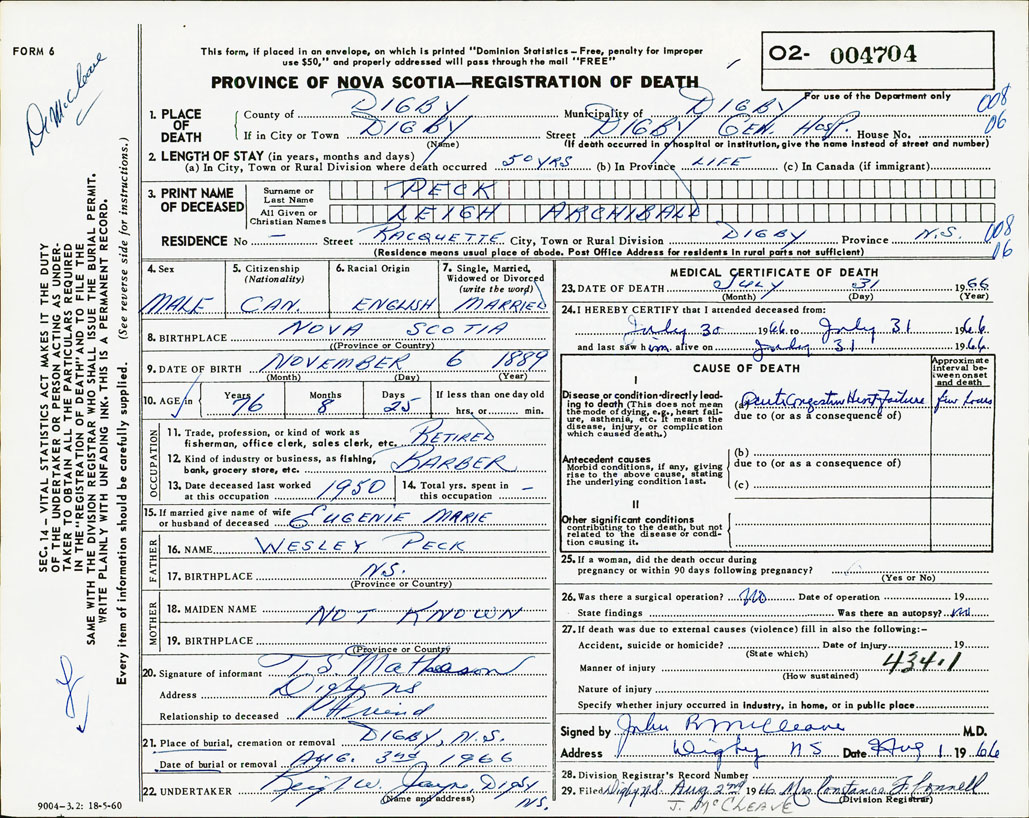 FORM 6
Dr McCleave
This form, if placed in an envelope, on which is printed "Dominion Statistics – Free, penalty for improper
use $50," and properly addressed will pass through the mail "FREE"
PROVINCE OF NOVA SCOTIA—REGISTRATION OF DEATH
O2- 004704
For use of the Department only
008
06
1. PLACE OF DEATH
County of DIGBY Municipality of DIGBY
If in City or Town DIGBY Street DIGBY GEN. HOSP. House No.
(Name) (If death occurred in a hospital or institution, give the name instead of street and number)
2. LENGTH OF STAY (in years, months and days)
(a) In City, Town or Rural Division where death occurred 50 YRS (b) In Province LIFE (c) In Canada (if immigrant)
3. PRINT NAME OF DECEASED
Surname or Last Name PECK
All Given or Christian Names LEIGH ARCHIBALD
RESIDENCE No – Street RACQUETTE City, Town or Rural Division DIGBY Province N.S. 008
06
(Residence means usual place of abode. Post Office Address for residents in rural parts not sufficient)
4. Sex MALE
5. Citizenship (Nationality) CAN.
6. Racial Origin ENGLISH
7. Single, Married, Widowed or Divorced (write the word) MARRIED
8. BIRTHPLACE NOVA SCOTIA
(Province or Country)
9. DATE OF BIRTH NOVEMBER 6 1889
(Month) (Day) (Year)
10. AGE in Years 76 Months 8 Days 25 If less than one day old hrs. or min.
OCCUPATION
11. Trade, profession, or kind of work as fisherman, office clerk, sales clerk, etc. RETIRED
12. Kind of industry or business, as fishing, bank, grocery store, etc. BARBER
13. Date deceased last worked at this occupation 1950
14. Total yrs. spent in this occupation –
15. If married give name of wife or husband of deceased EUGENIE MARIE
FATHER
16. NAME WESLEY PECK
17. BIRTHPLACE N.S.
(Province or Country)
MOTHER
18. MAIDEN NAME NOT KNOWN
19. BIRTHPLACE
(Province or Country)
20. Signature of informant T S Matheason
Address Digby NS
Relationship to deceased Friend
21. Place of burial, cremation or removal DIGBY, N.S.
Date of burial or removal AUG. 3rd 1966
22. UNDERTAKER W. Jayne Digby
(Name and address) NS.
9004–3.2: 18-5-60
MEDICAL CERTIFICATE OF DEATH
23. DATE OF DEATH JULY 31 1966
(Month) (Day) (Year)
24. I HEREBY CERTIFY that I attended deceased from:
July 30 1966 to July 31 1966
and last saw him alive on July 31 1966
CAUSE OF DEATH
Approximate interval between onset and death
I
Disease or condition directly leading to death (This does not mean the mode of dying, e.g., heart failure, asthenia, etc. It means the disease, injury, or complication which caused death.)
(a) Acute Congestive Heart Failure few hours
due to (or as a consequence of)
Antecedent causes
Morbid conditions, if any, giving rise to the above cause, stating the underlying condition last.
(b)
due to (or as a consequence of)
(c)
II
Other significant conditions
contributing to the death, but not related to the disease or condition causing it.
25. If a woman, did the death occur during
pregnancy or within 90 days following pregnancy?
(Yes or No)
26. Was there a surgical operation? No Date of operation 19
State findings Was there an autopsy? No
27. If death was due to external causes (violence) fill in also the following:–
Accident, suicide or homicide? Date of injury 19
(State which)
434.1
Manner of injury
(How sustained)
Nature of injury
Specify whether injury occurred in industry, in home, or in public place
Signed by John R McCleave M.D.
Address Digby NS Date Aug 1 1966
28. Division Registrar's Record Number
29. Filed Digby N.S. Aug 2nd 1966 Mrs Constance F. Connell
(Division Registrar)
J. McCLEAVE
SEC. 14 – VITAL STATISTICS ACT MAKES IT THE DUTY
OF THE UNDERTAKER OR PERSON ACTING AS UNDERTAKER TO OBTAIN ALL THE PARTICULARS REQUIRED
IN THE "REGISTRATION OF DEATH" AND TO FILE THE
SAME WITH THE DIVISION REGISTRAR WHO SHALL ISSUE THE BURIAL PERMIT.
WRITE PLAINLY WITH UNFADING INK. THIS IS A PERMANENT RECORD.
Every item of information should be carefully supplied. (See reverse side for instructions.)